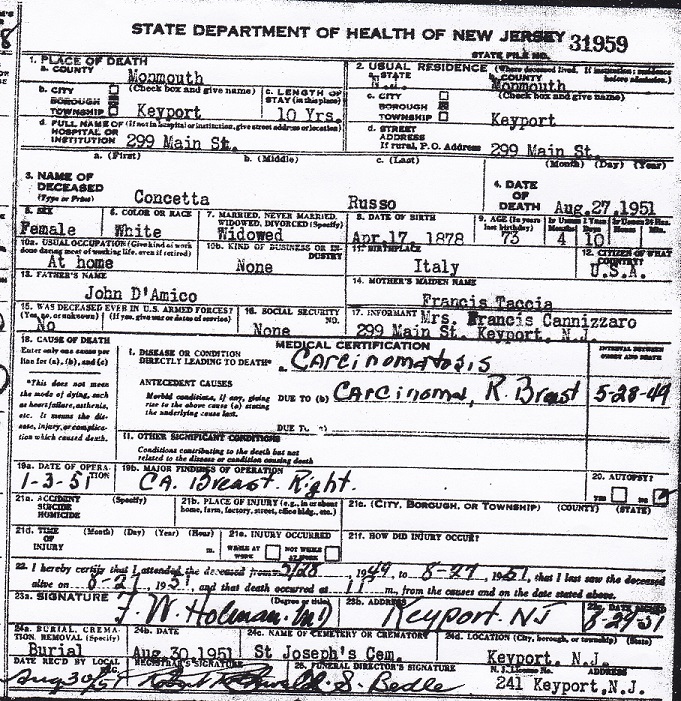 STATE DEPARTMENT OF HEALTH OF NEW JERSEY 31959
STATE FILE NO.
1. PLACE OF DEATH
a. COUNTY Monmouth
2. USUAL RESIDENCE (Where deceased lived. If institution: residence before admission.)
STATE
b. COUNTY Monmouth
b. CITY (Check box and give name)
BOROUGH
TOWNSHIP Keyport
c. LENGTH OF STAY (in this place) 10 Yrs.
c. CITY (Check box and give name)
BOROUGH
TOWNSHIP Keyport
d. FULL NAME OF (If not in hospital or institution, give street address or location)
HOSPITAL OR INSTITUTION 299 Main St.
d. STREET ADDRESS
If rural, P.O. Address 299 Main St.
3. NAME OF DECEASED (Type or Print)
a. (First) b. (Middle) c. (Last)
Concetta Russo
4. DATE OF DEATH (Month) (Day) (Year)
Aug.27,1951
5. SEX Female
6. COLOR OR RACE White
7. MARRIED, NEVER MARRIED, WIDOWED, DIVORCED (Specify) Widowed
8. DATE OF BIRTH Apr 17 1878
9. AGE (In years last birthday) 73
If Under 1 Year Months 4 Days 10
If Under 24 Hrs. Hours Min.
10a. USUAL OCCUPATION (Give kind of work done during most of working life, even if retired) At home
10b. KIND OF BUSINESS OR INDUSTRY None
11. BIRTHPLACE Italy
12. CITIZEN OF WHAT COUNTRY? U.S.A.
13. FATHER'S NAME John D'Amico
14. MOTHER'S MAIDEN NAME Francis Taccia
15. WAS DECEASED EVER IN U.S. ARMED FORCES?
(Yes, no, or unknown) (If yes, give war or dates of service)
No
16. SOCIAL SECURITY NO. None
17. INFORMANT Mrs. Francis Cannizzaro
299 Main St. Keyport, N.J.
18. CAUSE OF DEATH
Enter only one cause per line for (a), (b), and (c)
*This does not mean the mode of dying, such as heart failure, asthenia, etc. It means the disease, injury, or complication which caused death.
MEDICAL CERTIFICATION
INTERVAL BETWEEN ONSET AND DEATH
I. DISEASE OR CONDITION DIRECTLY LEADING TO DEATH* Carcinomatosis
ANTECEDENT CAUSES
Morbid conditions, if any, giving rise to the above cause (a) stating the underlying cause last.
DUE TO (b) Carcinoma, R. Breast 5-28-49
DUE TO
11. OTHER SIGNIFICANT CONDITIONS
Conditions contributing to the death but not related to the disease or condition causing death
19a. DATE OF OPERATION 1-3-51
19b. MAJOR FINDINGS OF OPERATION
CA. Breast Right.
20. AUTOPSY?
YES NO
21a. ACCIDENT SUICIDE HOMICIDE (Specify)
21b. PLACE OF INJURY (e.g., in or about home, farm, factory, street, office bldg., etc.)
21c. (CITY, BOROUGH, OR TOWNSHIP) (COUNTY) (STATE)
21d. TIME OF INJURY (Month) (Day) (Year) (Hour) m.
21e. INJURY OCCURRED
WHILE AT WORK NOT WHILE AT WORK
21f. HOW DID INJURY OCCUR?
22. I hereby certify that I attended the deceased from 5/28, 1949, to 8-27, 1951, that I last saw the deceased
alive on 8-27, 1951, and that death occurred at 11 m., from the causes and on the date stated above.
23a. SIGNATURE (Degree or title)
F. W. Holman. MD
23b. ADDRESS Keyport. NJ
23c. DATE SIGNED 8-29-51
24a. BURIAL, CREMATION, REMOVAL (Specify) Burial
24b. DATE Aug.30,1951
24c. NAME OF CEMETERY OR CREMATORY St Joseph's Cem.
24d. LOCATION (City, borough, or township) (State)
Keyport, N.J.
DATE REC'D BY LOCAL REG. Aug 30/51
REGISTRAR'S SIGNATURE
25. FUNERAL DIRECTOR'S SIGNATURE
S. Bedle
N. J. License No. ADDRESS
241 Keyport,N.J.